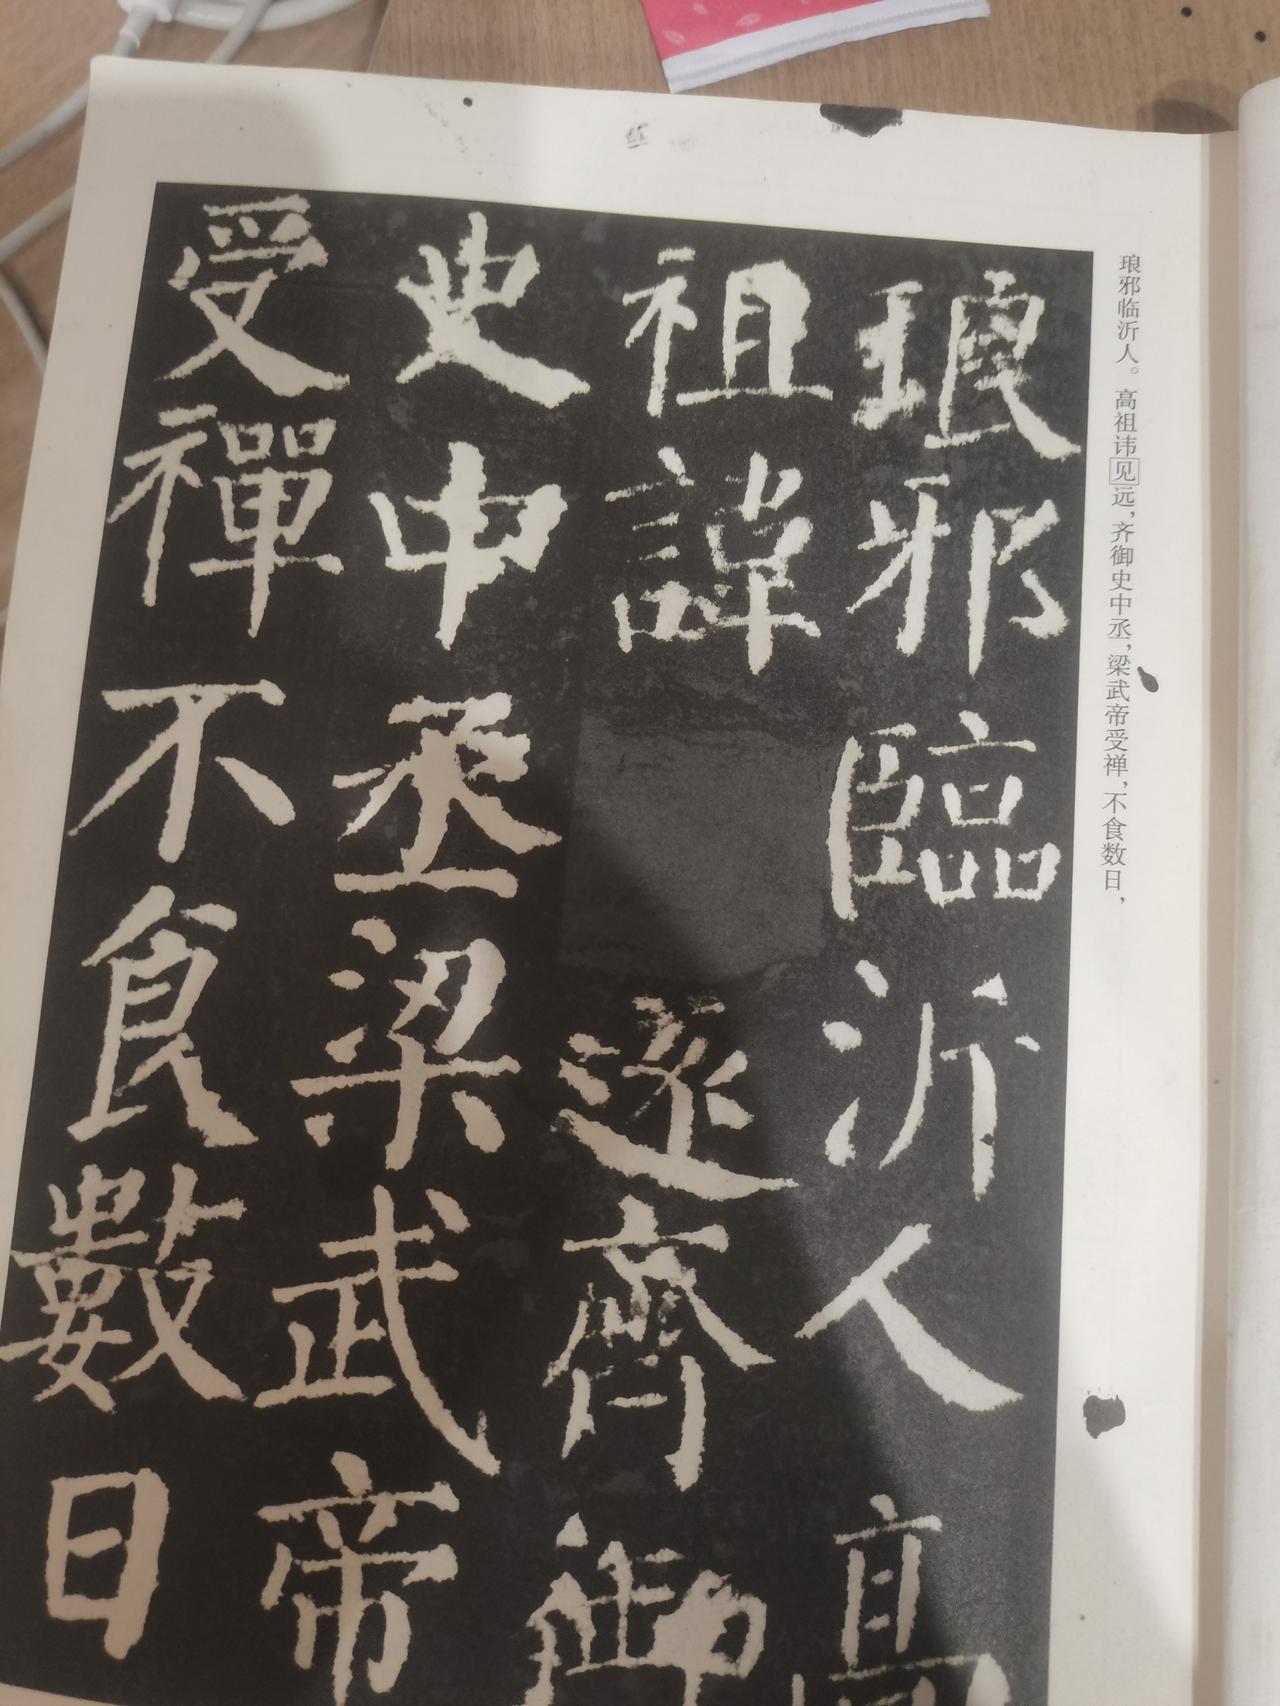 琅邪临沂人。高祖讳见远，齐御史中丞，梁武帝受禅，不食数日，
琅邪臨沂人高
祖諱遠齊御
史中丞梁武帝
受禪不食數日